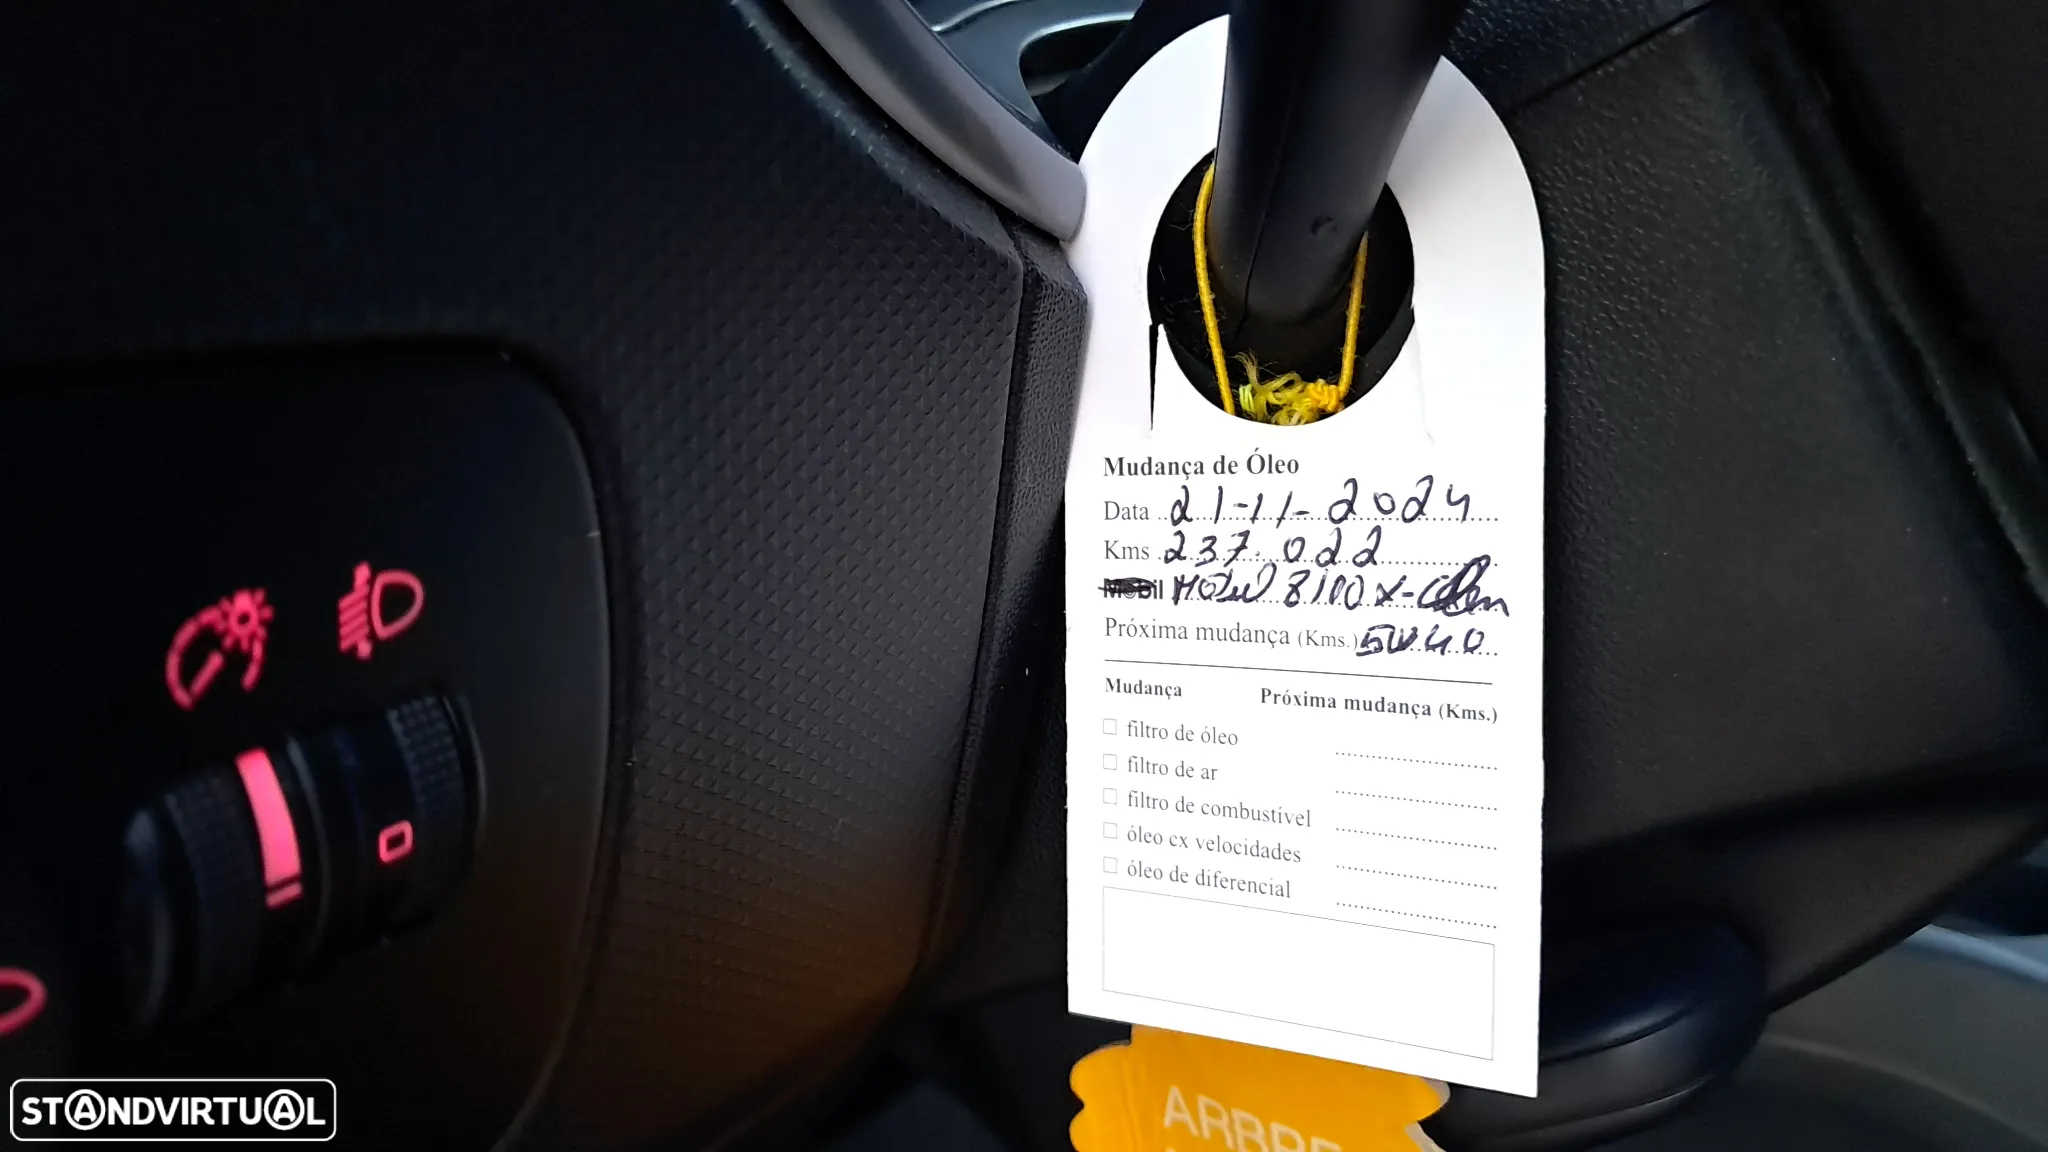 Mudança de Óleo
Data 21-11-2024
Kms 237.022
Mobil Motul 8100 X-Clean
Próxima mudança (Kms.) 5W40
Mudança Próxima mudança (Kms.)
filtro de óleo
filtro de ar
filtro de combustível
óleo cx velocidades
óleo de diferencial
ARBRE
STANDVIRTUAL